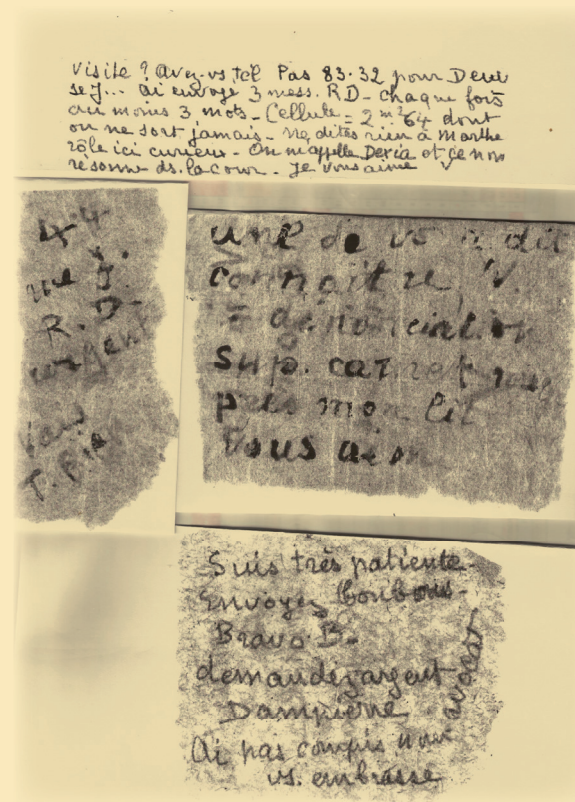 visite ? avez-vs tél Pas 83.32 pour Denu
se J... ai envoyé 3 mess. RD - chaque fois
au moins 3 mots - Cellule = 2m²64 dont
on ne sort jamais - ne dites rien à Marthe
rôle ici curieux - On m'appelle Dexia et ce nom
résonne ds. la cour. - Je vous aime
44
J.
R. D-
argent
T.
une de vs a dit
connaître V.
= dénonciation
sup. carnet
près mon lit
Vous aim
Suis très patiente -
Envoyez bonbons -
Bravo B -
demandez argent
Dampierre
avocat
Ai pas compris nom
vs. embrasse